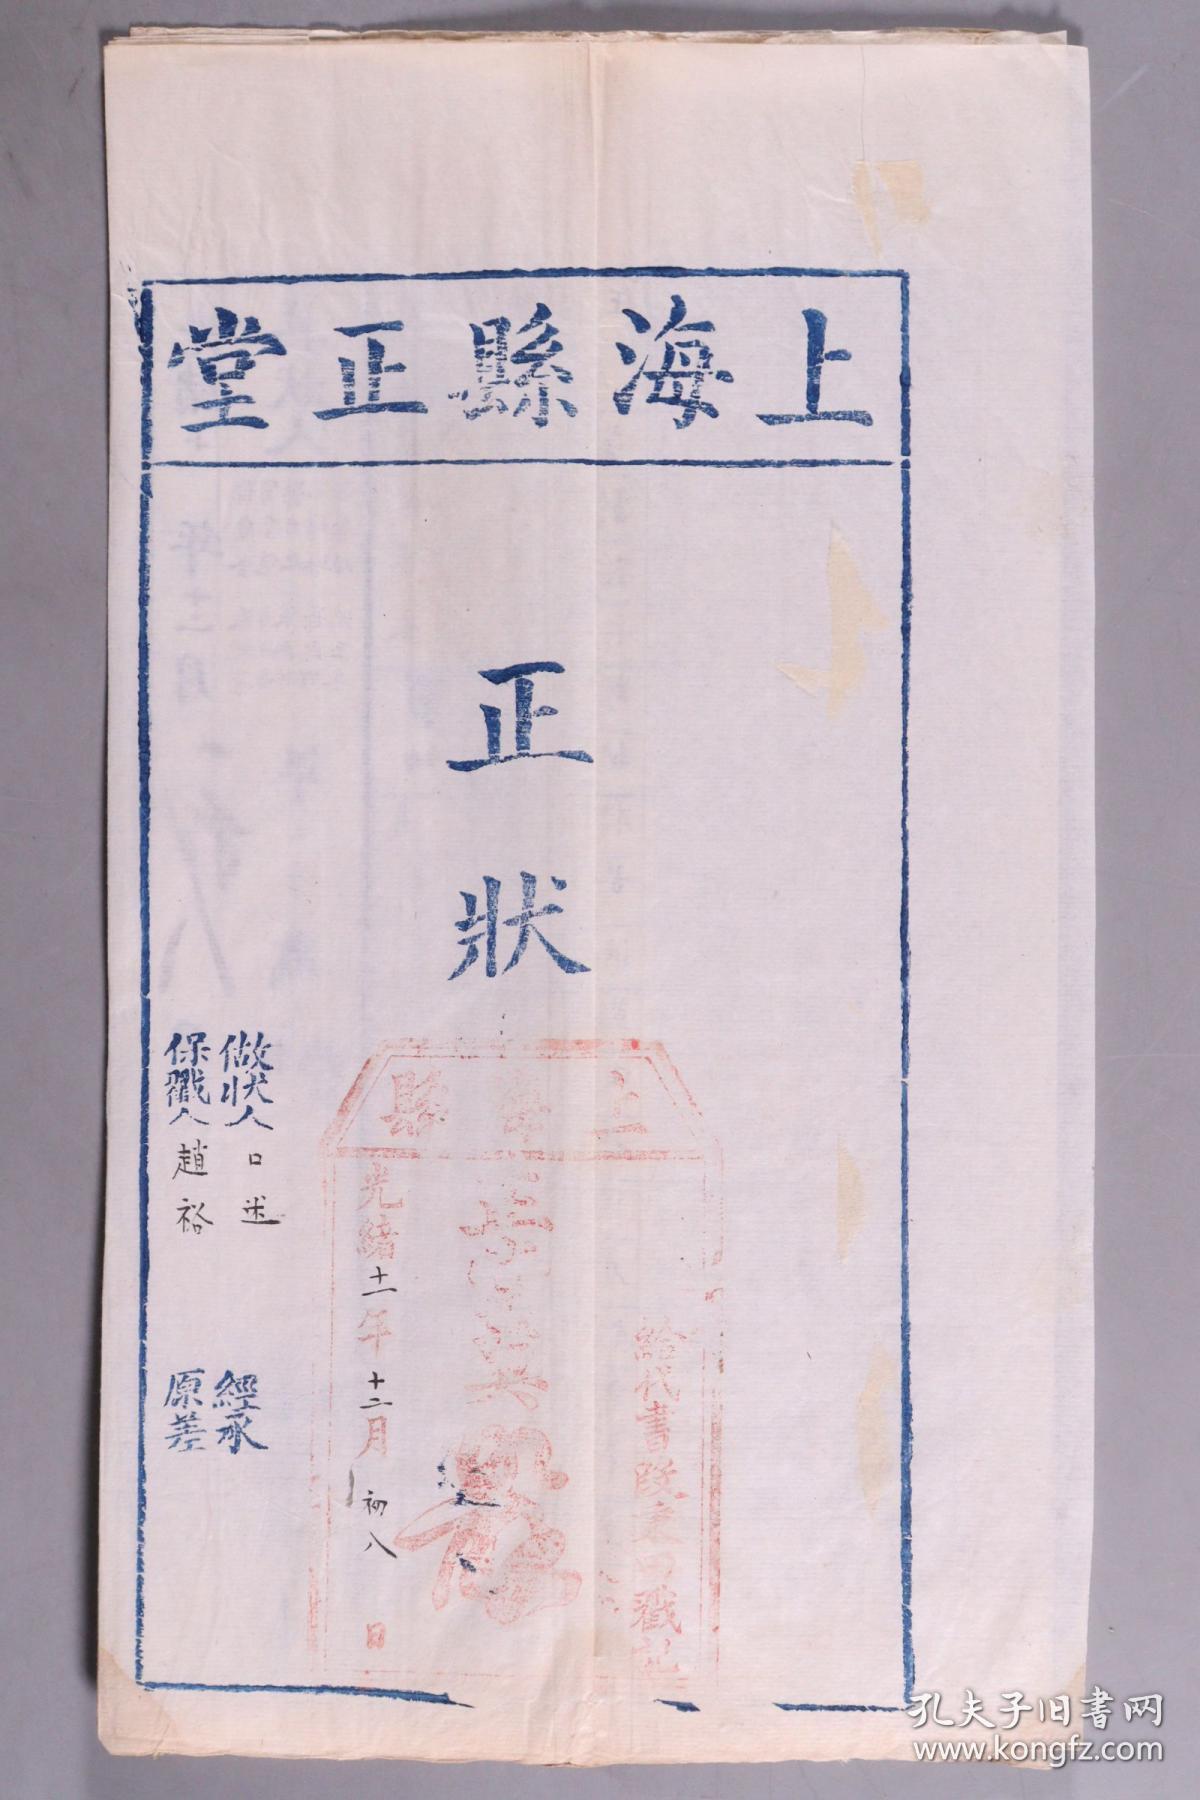 上海縣正堂
正狀
上海縣
給代書
戳記
光緒十一年十二月初八日
做狀人口述
保戳人趙裕
經承
原差
孔夫子旧书网
www.kongfz.com